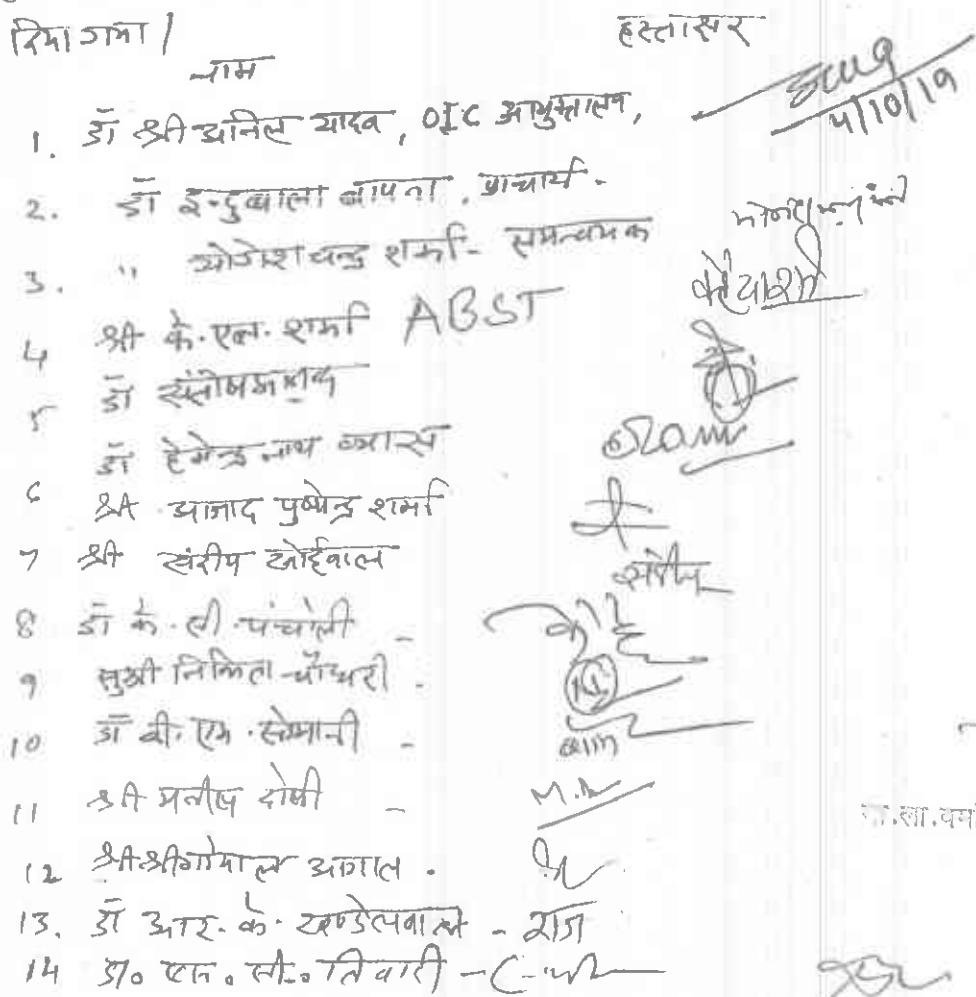 दिया गया /
नाम हस्ताक्षर
1. डॉ श्री अनिल यादव, OIC आयुक्तालय, 4/10/19
2. डॉ इन्दुबाला बापना, प्राचार्य.
3. " योगेश चन्द्र शर्मा - समन्वयक
4 श्री के.एल. शर्मा ABST
5 डॉ संतोष
डॉ हेमेन्द्र नाथ व्यास
6 श्री आजाद पुष्पेन्द्र शर्मा
7 श्री संदीप खोईवाल
8 डॉ के.सी. पंचोली -
9 सुश्री निकिता चौधरी .
10 डॉ बी.एम. सोमानी -
11 श्री मनीष दोषी -
12 श्री श्रीगोपाल अगाल .
13. डॉ आर.के. खण्डेलवाल - राज
14 डॉ० एन.सी. तिवारी -
ला.वर्मा